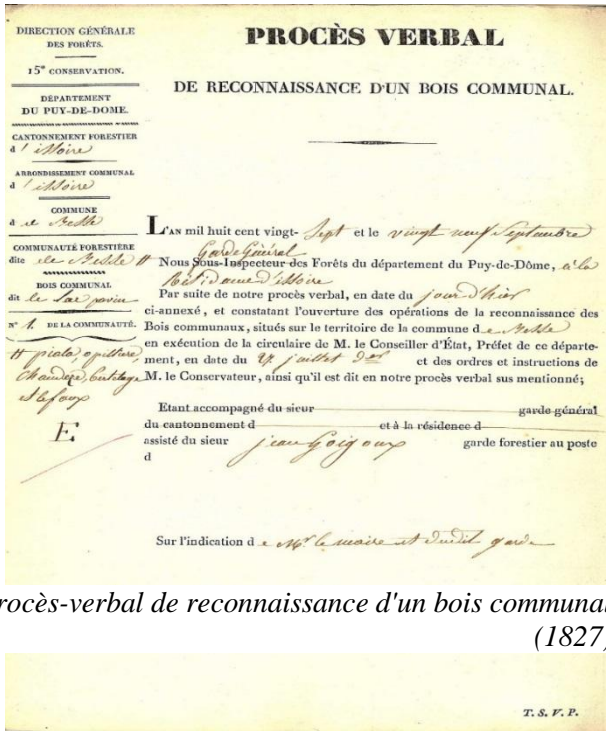 DIRECTION GÉNÉRALE
DES FORÊTS.
15e CONSERVATION.
DÉPARTEMENT
DU PUY-DE-DOME.
CANTONNEMENT FORESTIER
d'issoire
ARRONDISSEMENT COMMUNAL
d'issoire
COMMUNE
de Besse
COMMUNAUTÉ FORESTIÈRE
dite de Besse
BOIS COMMUNAL
dit le Lac pavin #
N° 1. DE LA COMMUNAUTÉ.
# 
Chaudere,
et le faux
E
PROCÈS VERBAL
DE RECONNAISSANCE D'UN BOIS COMMUNAL.
L'AN mil huit cent vingt- Sept et le vingt neuf Septembre
Garde Général
Nous Sous-Inspecteur des Forêts du département du Puy-de-Dôme, à la
Résidence d'issoire
Par suite de notre procès verbal, en date du jour d'hier
ci-annexé, et constatant l'ouverture des opérations de la reconnaissance des
Bois communaux, situés sur le territoire de la commune de Besse
en exécution de la circulaire de M. le Conseiller d'État, Préfet de ce départe-
ment, en date du 27 juillet der et des ordres et instructions de
M. le Conservateur, ainsi qu'il est dit en notre procès verbal sus mentionné;
Etant accompagné du sieur garde général
du cantonnement d et à la résidence d
assisté du sieur jean Goigoux garde forestier au poste
d
Sur l'indication de Mr le maire et dudit garde
rocès-verbal de reconnaissance d'un bois communal
(1827)
T. S. V. P.